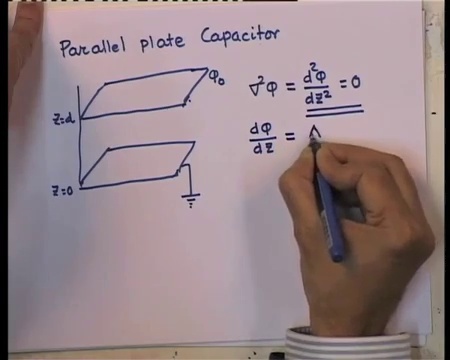 Parallel plate Capacitor
φ₀
∇²φ = d²φ/dz² = 0
z=d
dφ/dz =
z=0